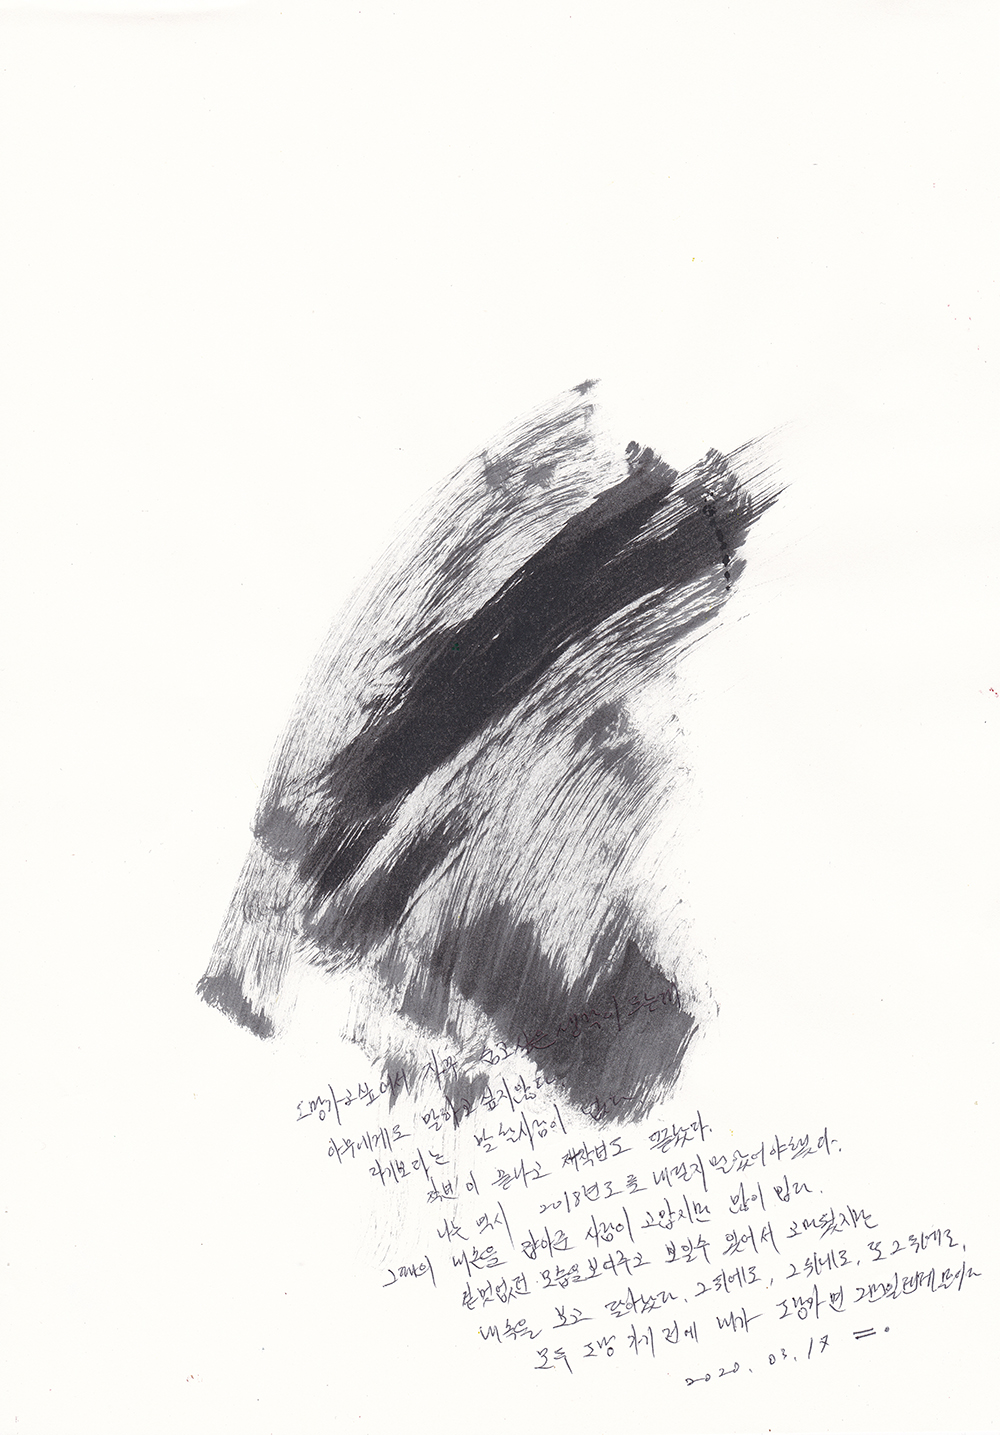 도망가고싶어서 자꾸 숨고싶은 생각이 드는데
아무에게도 말하고 싶지않다
라기보다는 말할사람이 없다
작년이 끝나고 재작년도 끝났다.
나는 역시 2018년도를 내던지 말았어야했다.
그때의 내손을 잡아준 사람이 고맙지만 많이 밉다.
멋없던 모습을보여주고 보일수 있어서 고마웠지만
내속을 보고 달아났다. 그뒤에도, 그뒤에도, 또 그뒤에도,
모두 도망가기 전에 내가 도망가면 그만일텐데 말이다
2020. 03. 17